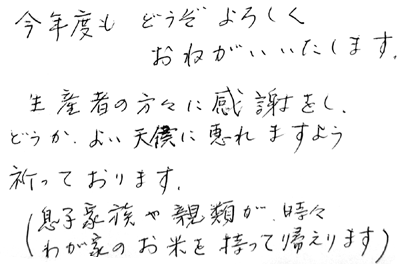 今年度も どうぞよろしく
おねがいいたします。
生産者の方々に感謝をし、
どうか、よい天候に恵れますよう
祈っております。
(息子家族や親類が、時々
わが家のお米を持って帰えります)